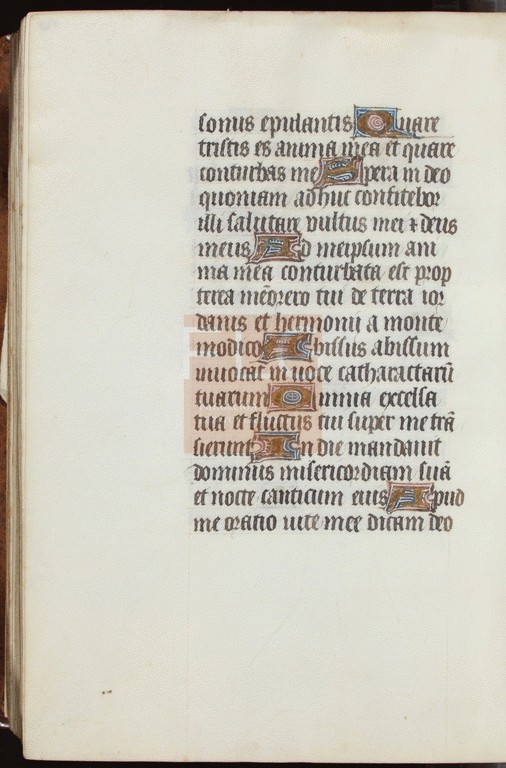 sonus epulantis Quare
tristis es anima mea et quare
conturbas me Spera in deo
quoniam adhuc confitebor
illi salutare vultus mei ⁊ deus
meus Ad meipsum ani
ma mea conturbata est prop
terea memorero tui de terra ior
danis et hermonii a monte
modico Abissus abissum
invocat in voce catharactarū
tuarum Omnia excelsa
tua et fluctus tui super me trā
sierunt In die mandavit
dominus misericordiam suā
et nocte canticum eius Apud
me oratio vite mee dicam deo